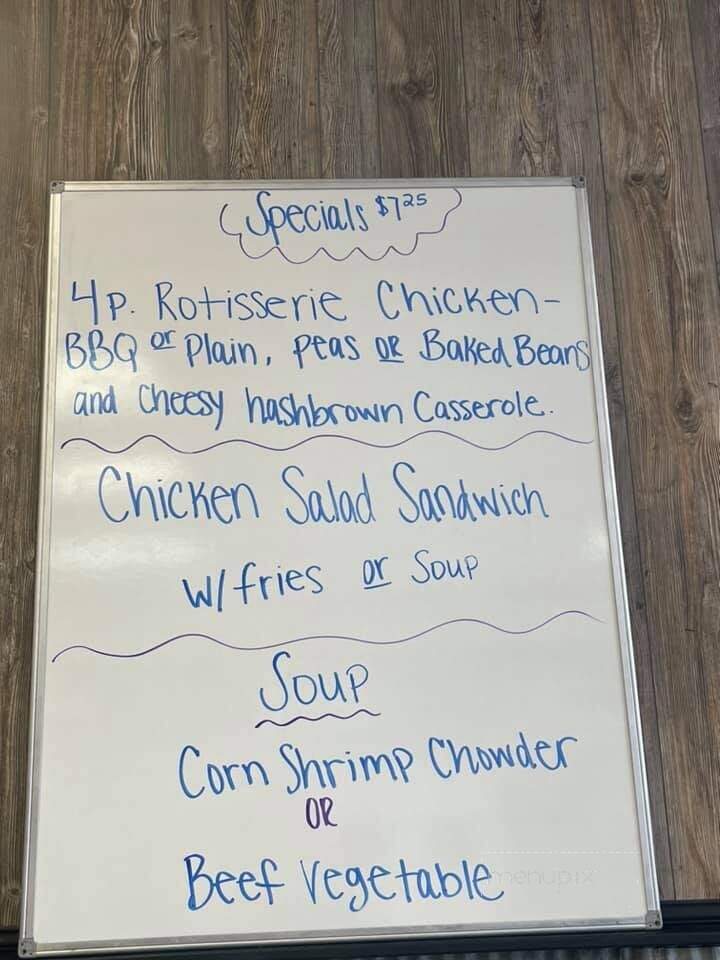 Specials $7.25
4p. Rotisserie Chicken-
BBQ or Plain, peas OR Baked Beans
and Cheesy hashbrown Casserole.
Chicken Salad Sandwich
w/ fries or Soup
Soup
Corn Shrimp Chowder
OR
Beef Vegetable
menupix